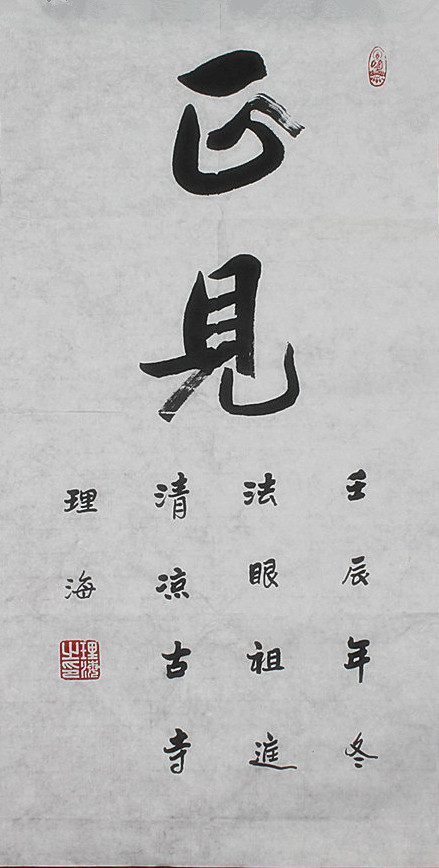 正見
壬辰年冬
法眼祖庭
清涼古寺
理海
理海之印